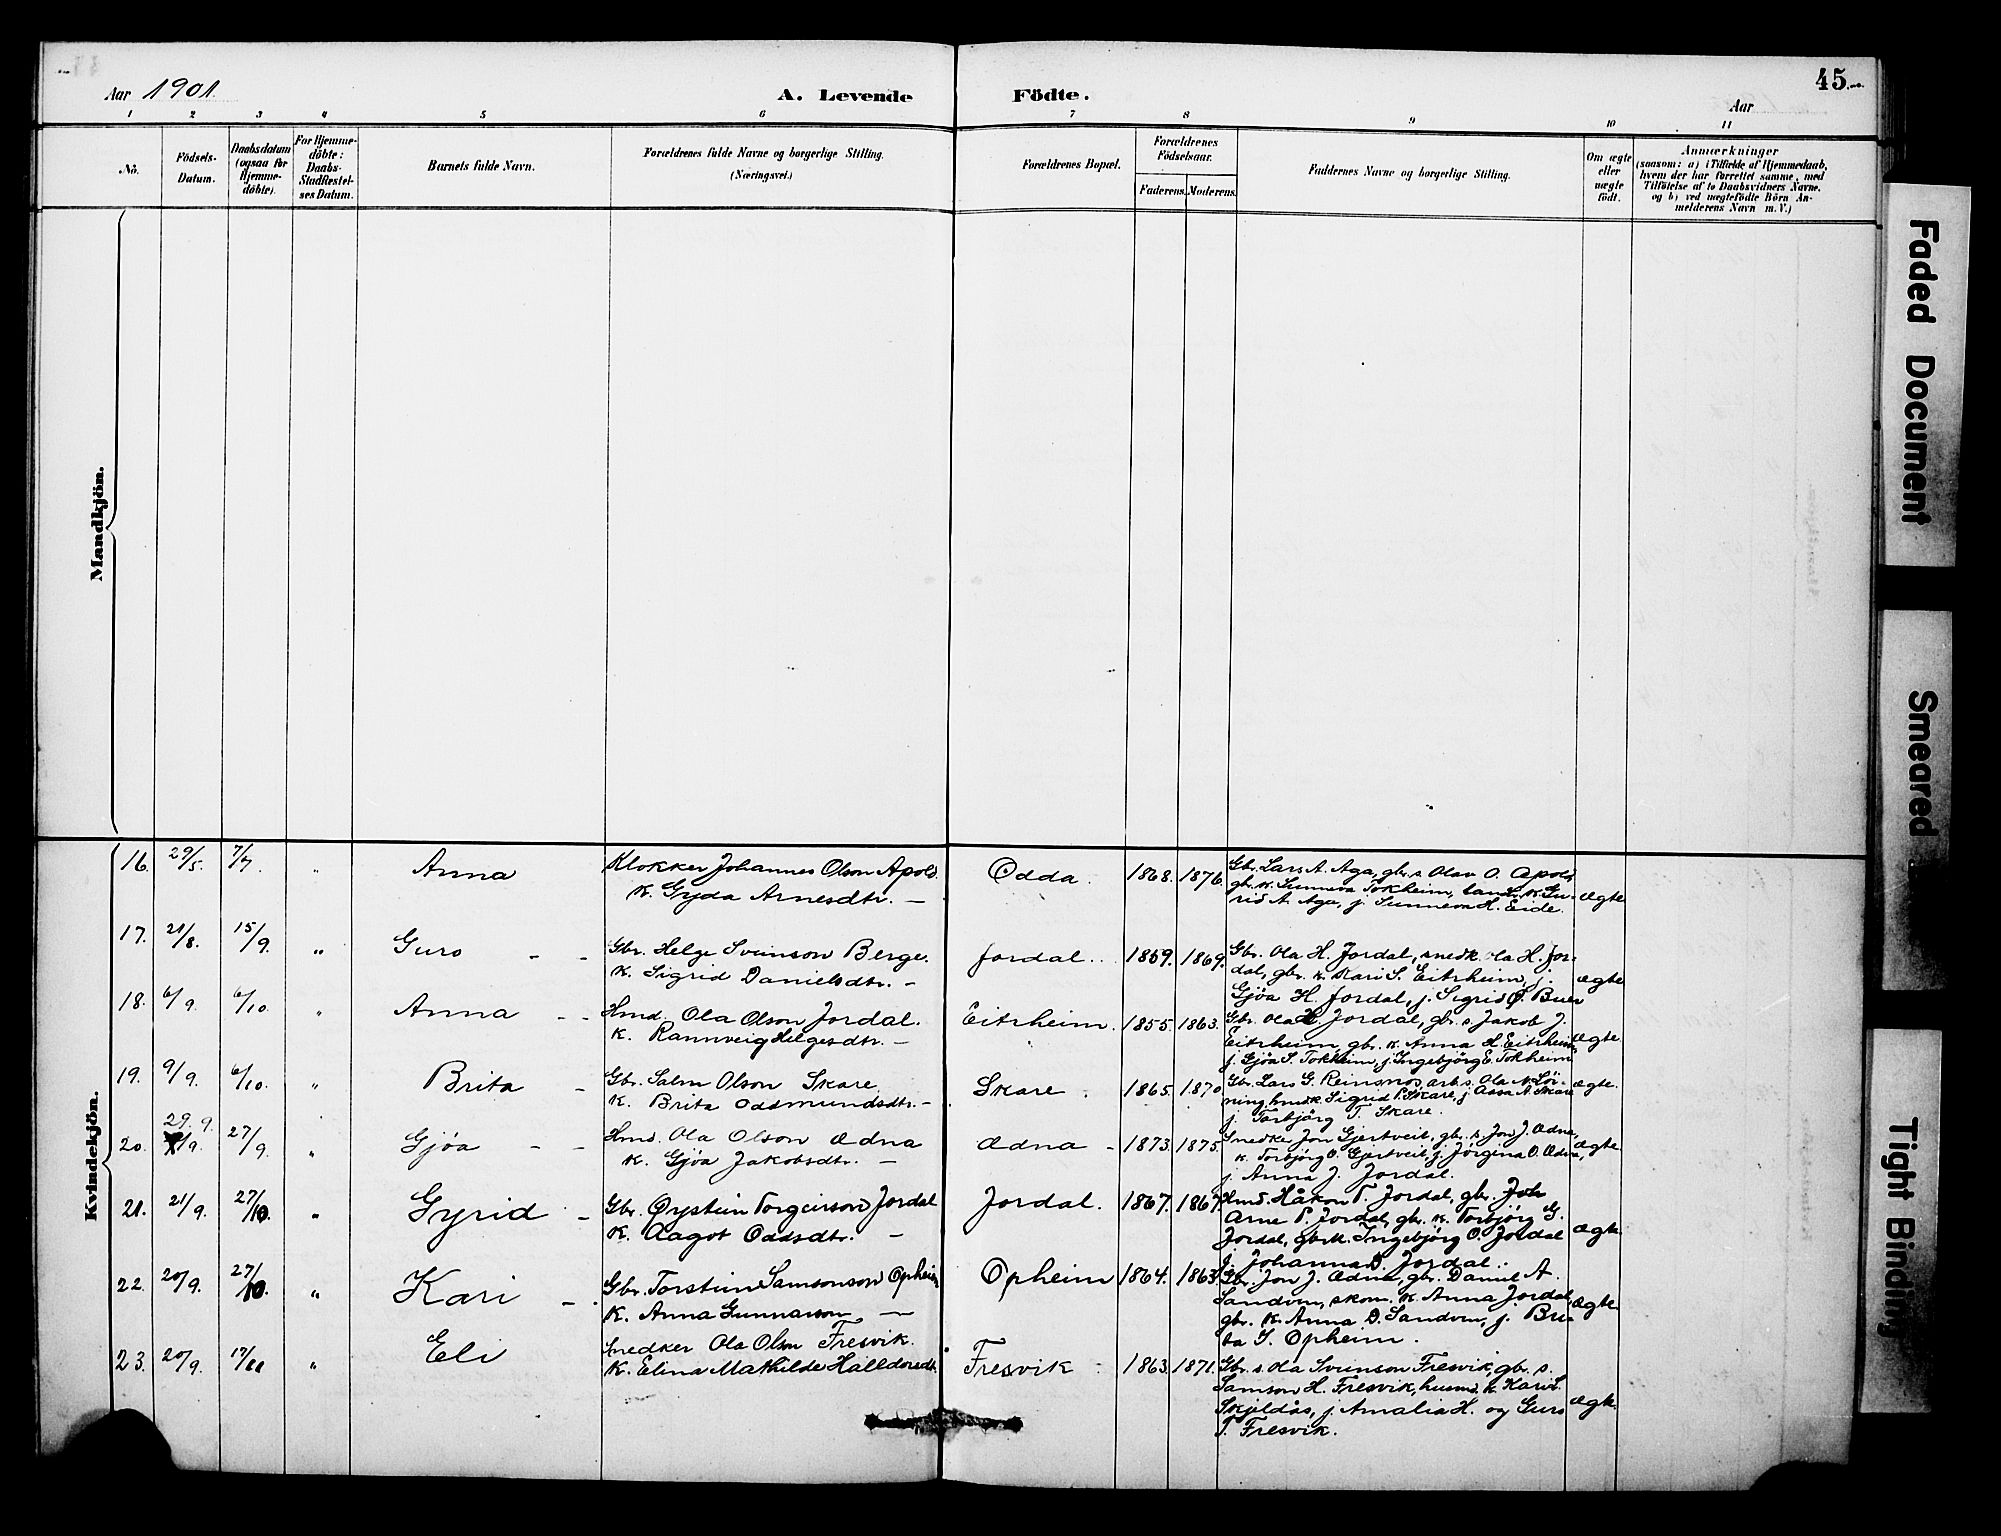 45
Aar 1901.
A. Levende Födte.
Aar
1 2 3 4 5 6 7 8 9 10 11
No.
Födsels-Datum.
Daabsdatum (ogsaa for Hjemme-döbte).
For Hjemme-döbte: Daabs-Stadfæstel-ses Datum.
Barnets fulde Navn.
Forældrenes fulde Navne og borgerlige Stilling.
(Næringsvei.)
Forældrenes Bopæl.
Forældrenes Födselsaar.
Faderens. Moderens.
Faddernes Navne og borgerlige Stilling.
Om ægte eller uægte født.
Anmærkninger
(saasom: a) i Tilfælde af Hjemmedaab,
hvem der har forrettet samme, med
Tilföielse af to Daabsvidners Navne.
og b) ved uægtefödte Börn An-
melderens Navn m. V.)
Mandkjön.
Kvindekjön.
16. 29/5. 7/7. " Anna
Klokker Johannes Olson Apold.
k. Gyda Arnesdtr. —
Odda. 1868. 1876.
Gbr. Lars A. Aga, gbr. s. Olav O. Apold,
gbr. k. Sunneva Tokheim, k. Gu-
rid A. Aga, j. Sunneva H. Eide.
ægte
17. 21/8. 15/9. " Guro - -
Gbr. Helge Svenson Berge.
k. Sigrid Danielsdtr. —
Jordal. 1859. 1869.
Gbr. Ola H. Jordal, snedk. Ola H. Jor-
dal, gbr. k. Kari S. Eitrheim, j.
Gjøa H. Jordal, j. Sigrid Ø. Buer
ægte
18. 6/9. 6/10. " Anna - -
Hmd. Ola Olson Jordal.
k. Rannveig Helgesdtr. —
Eitrheim. 1855. 1863.
Gbr. Ola H. Jordal, gbr. s. Jakob J.
Eitrheim, gbr. k. Anna H. Eitrheim
j. Gjøa S. Tokheim, j. Ingebjörg E. Tokheim
ægte
19. 9/9. 6/10. " Brita -
Gbr. Salm Olson Skare.
k. Brita Oddmundsdtr. —
Skare. 1865. 1870
Gbr. Lars G. Reinsnos, arb. s. Ola N. Lör-
ning, hmdk. Sigrid P. Skare, j. Aasa A. Skare
j. Torbjörg T. Skare.
ægte.
29. 9.
20. 27/9. " Gjøa - -
Hmd. Ola Olson Ædna
k. Gjøa Jakobsdtr. —
Ædna - 1873. 1875.
Snedke Jon Gjertveit, gbr. s. Jon J. Ædna,
k. Torbjörg O. Gjertveit, j. Jörgina O. Ædna,
j. Anna J. Jordal.
ægte.
21. 21/9. 27/10. " Gyrid -
Gbr. Øystein Torgeirson Jordal
k. Aagot Oddsdtr. —
Jordal. 1867. 1867.
Hmd. Håkon T. Jordal, gbr. Joh
Arne P. Jordal, gbr. k. Torbjörg G.
Jordal, gbrk. Ingebjörg O. Jordal
j. Johanna D. Jordal.
ægte.
22. 20/9. 27/10. " Kari -
Gbr. Torstein Samsonson Opheim
k. Anna Gunnarson —
Opheim 1864. 1863.
Gbr. Jon J. Ædna, gbr. Daniel A.
Sandven, skom. k. Anna Jordal,
gbr. k. Anna D. Sandven, j. Bri-
ta S. Opheim.
ægte
23. 20/9. 17/11. " Eli
Snedker Ola Olson Fresvik.
k. Elina Mathilde Halldorsdtr.
Fresvik - 1863. 1871.
Gbr. s. Ola Svenson Fresvik, gbr. s.
Samson H. Fresvik, husmd. k. Kari L.
Skjeldås, j. Amalia H. og Guro
T. Fresvik.
ægte.
Faded Document
Smeared
Tight Binding